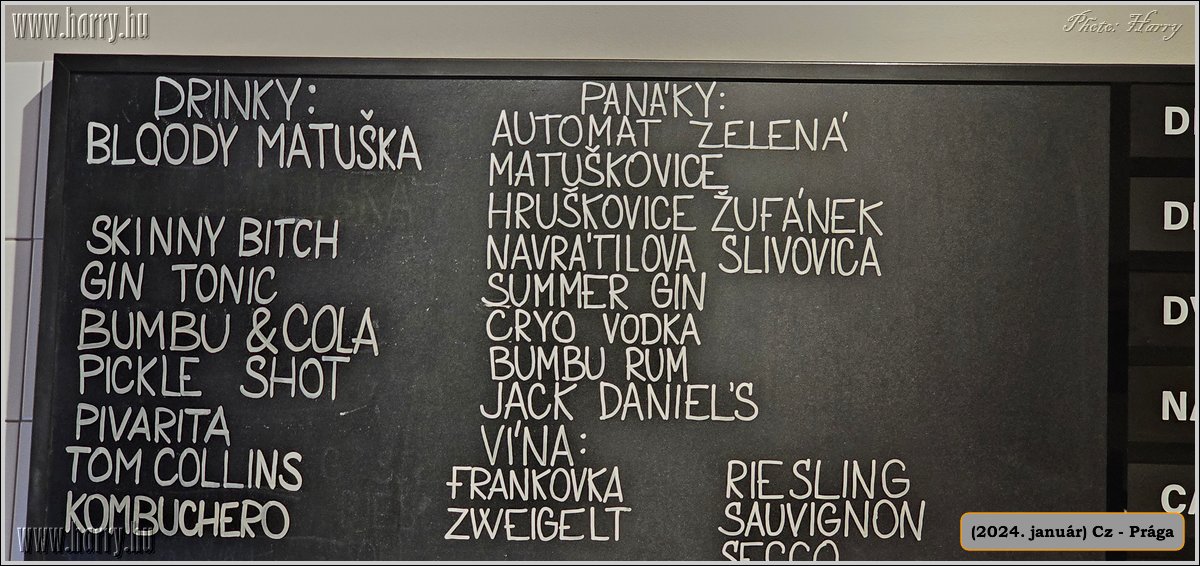 www.harry.hu
Photo: Harry
DRINKY:
BLOODY MATUŠKA
SKINNY BITCH
GIN TONIC
BUMBU & COLA
PICKLE SHOT
PIVARITA
TOM COLLINS
KOMBUCHERO
PANÁKY:
AUTOMAT ZELENÁ
MATUŠKOVICE
HRUŠKOVICE ŽUFÁNEK
NAVRÁTILOVA SLIVOVICA
SUMMER GIN
CRYO VODKA
BUMBU RUM
JACK DANIEL'S
VÍNA:
FRANKOVKA
ZWEIGELT
RIESLING
SAUVIGNON
SECCO
D
D
NA
www.harry.hu
(2024. január) Cz - Prága